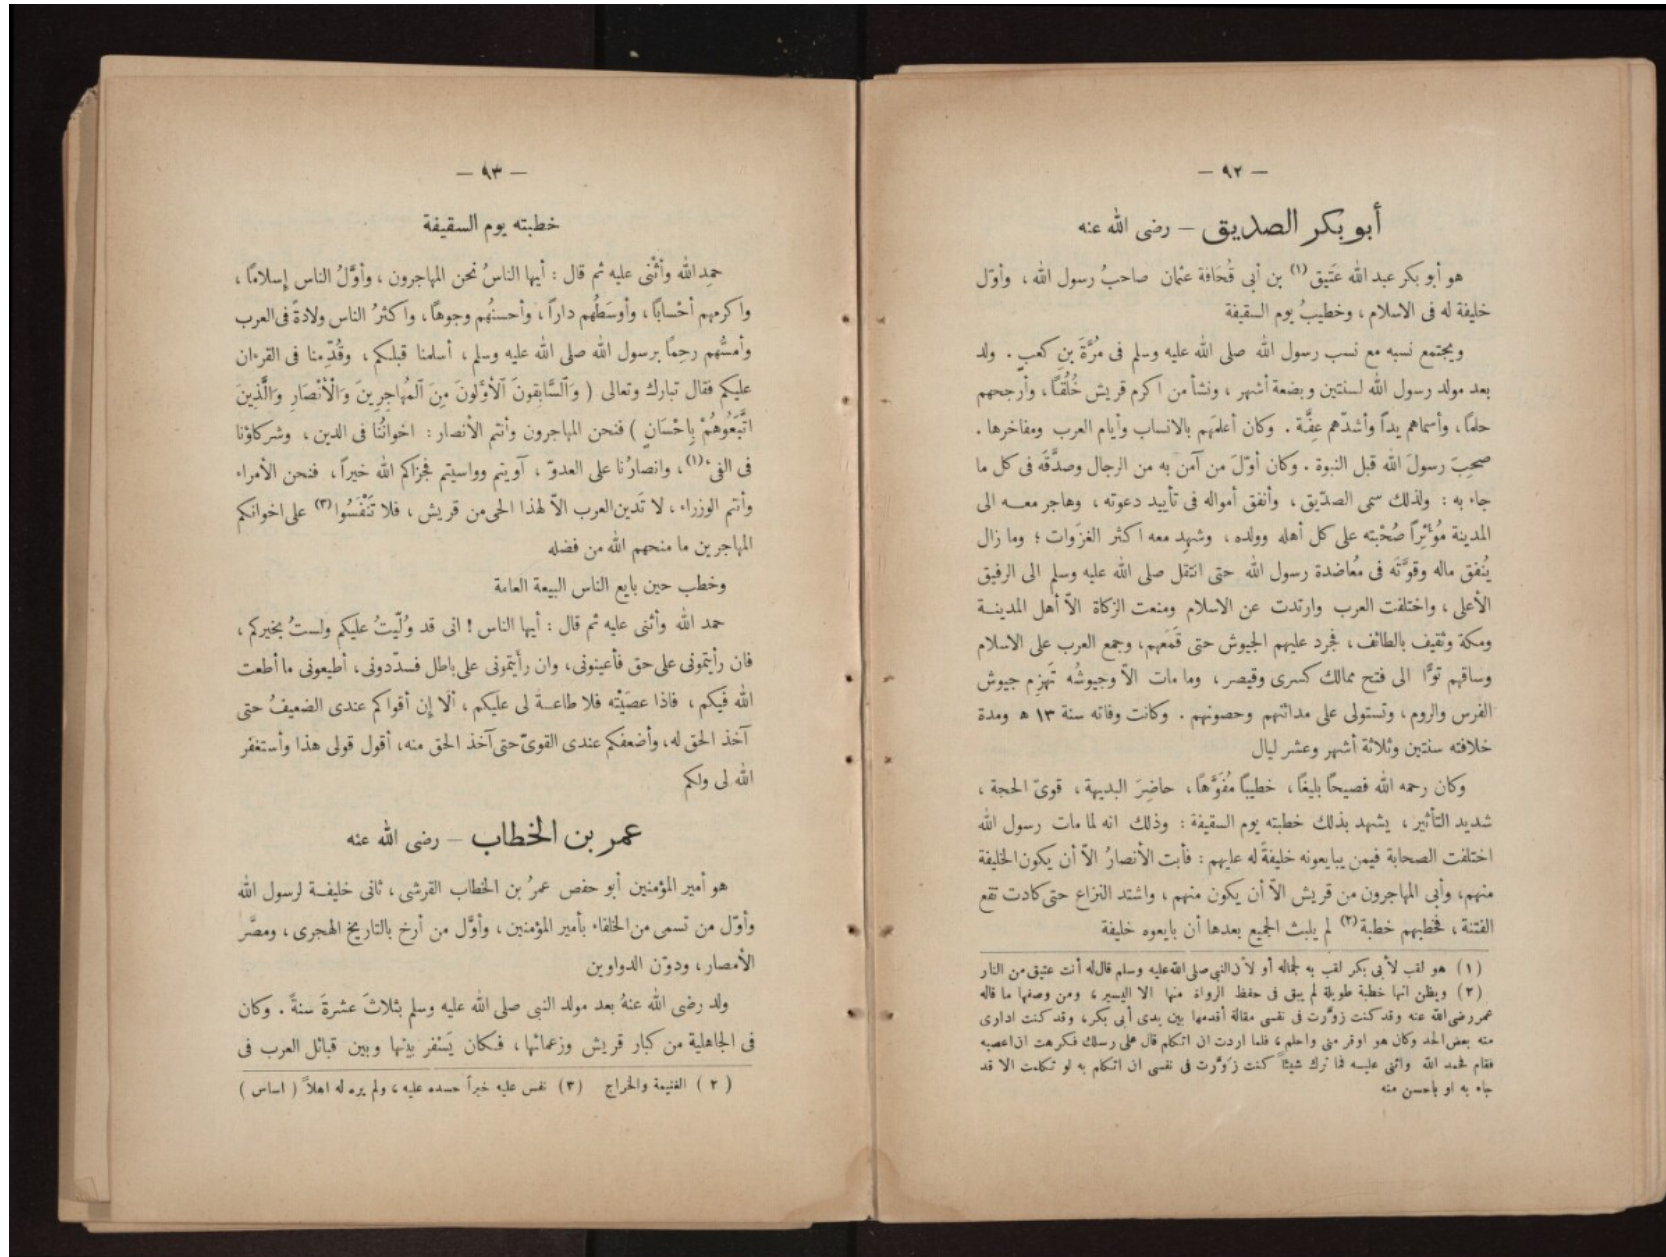 — ٩٢ —
أبو بكر الصديق — رضى الله عنه
هو أبو بكر عبد الله عَتيق (١) بن أبى قُحَافة عثمان صاحبُ رسول الله ، وأوّل
خليفة له فى الاسلام ، وخطيبُ يوم السقيفة
ويجتمع نسبه مع نسب رسول الله صلى الله عليه وسلم فى مُرَّةَ بنِ كعبٍ . ولد
بعد مولد رسول الله لسنتين وبضعة أشهر ، ونشأ من اكرم قريش خُلُقًا ، وأرجحهم
حلمًا ، وأسماهم يداً وأشدّهم عِفَّة . وكان أعلمَهم بالانساب وأيام العرب ومفاخرها .
صحِبَ رسولَ الله قبل النبوة . وكان أوّلَ من آمن به من الرجال وصدَّقَه فى كل ما
جاء به : ولذلك سمى الصدّيق ، وأنفق أمواله فى تأييد دعوته ، وهاجر معـه الى
المدينة مُؤْثِراً صُحْبته على كل أهله وولده ، وشهِد معه اكثر الغزَوات ؛ وما زال
يُنفق ماله وقوَّتَه فى مُعاضدة رسول الله حتى انتقل صلى الله عليه وسلم الى الرفيق
الأعلى ، واختلفت العرب وارتدت عن الاسلام ومنعت الزكاة الاّ أهل المدينـة
ومكة وثقيف بالطائف ، فجرد عليهم الجيوش حتى قَمَعهم، وجمع العرب على الاسلام
وساقهم توًّا الى فتح ممالك كسرى وقيصر ، وما مات الاّ وجيوشُه تَهزِم جيوش
الفرس والروم، وتستولى على مدائنهم وحصونهم . وكانت وفاته سنة ١٣ ھ ومدة
خلافته سنتين وثلاثة أشهر وعشر ليال
وكان رحمه الله فصيحًا بليغًا ، خطيبًا مُفَوَّهًا ، حاضِرَ البديهة ، قوىّ الحجة ،
شديد التأثير ، يشهد بذلك خطبته يوم السقيفة : وذلك انه لما مات رسول الله
اختلفت الصحابة فيمن يبايعونه خليفةً له عليهم : فأبت الأنصارُ الاّ أن يكون الخليفة
منهم، وأبى المهاجرون من قريش الاّ أن يكون منهم ، واشتد النزاع حتى كادت تقع
الفتنة ، فخطبهم خطبة (٢) لم يلبث الجميع بعدها أن بايعوه خليفة
(١) هو لقب لأبى بكر لقب به لجماله أو لأن النبى صلى الله عليه وسلم قال له أنت عتيق من النار
(٢) ويظن انها خطبة طويلة لم يبق فى حفظ الرواة منها الا اليسير ، ومن وصفها ما قاله
عمر رضى الله عنه وقد كنت زوَّرت فى نفسى مقالة أقدمها بين يدى أبى بكر ، وقد كنت ادارى
منه بعض الحد وكان هو اوقر منى واحلم ، فلما اردت ان اتكلم قال على رسلك فكرهت ان اعصبه
فقام فحمد الله واثنى عليـه فما ترك شيئاً كنت زَوَّرت فى نفسى ان اتكلم به لو تكلمت الا قد
جاء به او باحسن منه
— ٩٣ —
خطبته يوم السقيفة
حمِد الله وأثْنى عليه ثم قال : أيها الناسُ نحن المهاجرون ، وأوَّلُ الناس إسلامًا ،
واكرمهم أحْسابًا ، وأوسَطُهم داراً ، وأحسنُهم وجوهًا، واكثرُ الناس ولادةً فى العرب
وأمسُّهم رحِمًا برسول الله صلى الله عليه وسلم ، أسلمنا قبلكم ، وقُدِّمنا فى القرءان
عليكم فقال تبارك وتعالى ( وَٱلسَّابِقونَ ٱلْأوَّلونَ مِنَ ٱلمُهاجِرِينَ وَٱلْأَنْصَارِ وَٱلَّذِينَ
اتَّبَعُوهُمْ بِإحْسَانٍ ) فنحن المهاجرون وأنتم الأنصار : اخوانُنا فى الدين ، وشركاؤنا
فى الفىء (١) ، وانصارُنا على العدوّ ، آويتم وواسيتم فجزاكم الله خيراً ، فنحن الأمراء
وأنتم الوزراء ، لا تَدين العرب الاّ لهذا الحى من قريش ، فلا تَنْفَسُوا (٣) على اخوانكم
المهاجرين ما منحهم الله من فضله
وخطب حين بايع الناس البيعة العامة
حمد الله وأثنى عليه ثم قال : أيها الناس ! انى قد وُلّيتُ عليكم ولستُ بخيركم ،
فان رأيتمونى على حق فأعينونى، وان رأيتمونى على باطل فسدّدونى، أطيعونى ما أطعت
الله فيكم ، فاذا عصَيْته فلا طاعـةَ لى عليكم ، ألَا إن أقواكم عندى الضعيفُ حتى
آخذ الحق له، وأضعفَكم عندى القوىّ حتى آخذ الحق منه، أقول قولى هذا وأستغفر
الله لى ولكم
عمر بن الخطاب — رضى الله عنه
هو أمير المؤمنين أبو حفص عمرُ بن الخطاب القرشى ، ثانى خليفـة لرسول الله
وأوّل من تسمى من الخلفاء بأمير المؤمنين ، وأوَّل من أرخ بالتاريخ الهجرى ، ومصَّر
الأمصار ، ودوّن الدواوين
ولد رضى الله عنهُ بعد مولد النبى صلى الله عليه وسلم بثلاثَ عشرةَ سنةً . وكان
فى الجاهلية من كبار قريش وزعمائها ، فـكان يَسْفر بينها وبين قبائل العرب فى
( ٢ ) الغنيمة والخراج (٣) نفس عليه خيراً حسده عليه ، ولم يره له اهلاً ( اساس )